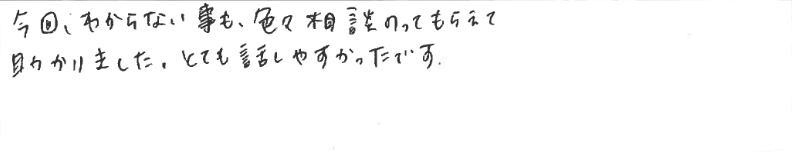 今回、わからない事も、色々相談のってもらえて
助かりました。とても話しやすかったです.